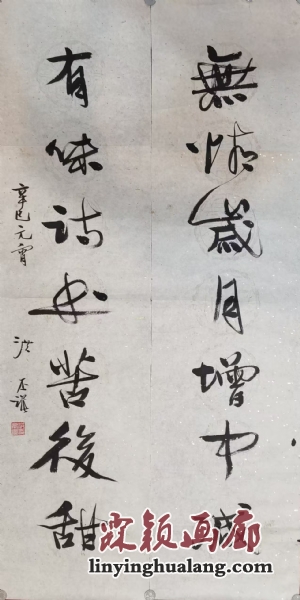 無情歲月增中減
有味詩書苦後甜
辛巳元宵 洪丕謨
琳颖画廊
linyinghualang.com